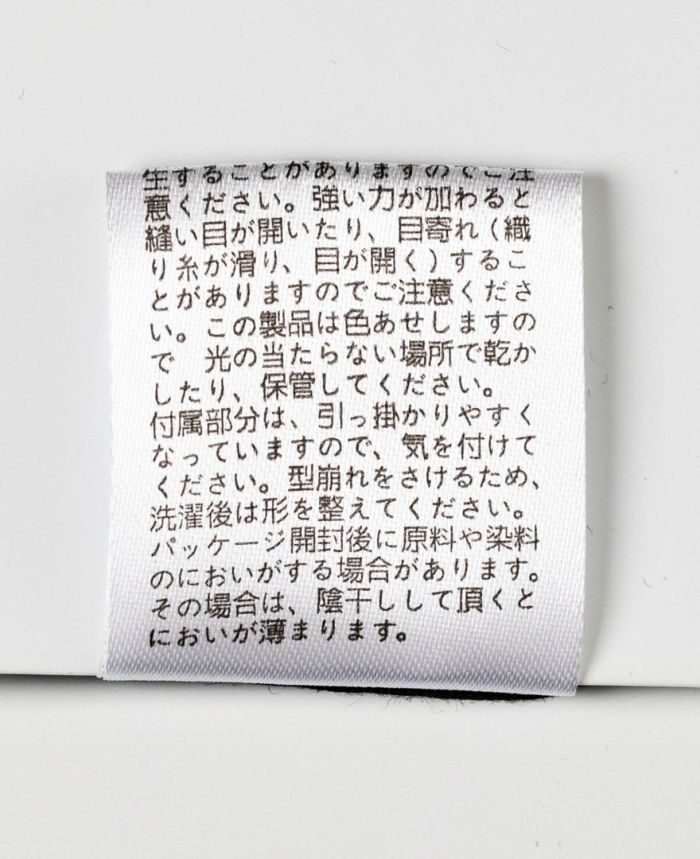 生することがありますのでご注
意ください。強い力が加わると
縫い目が開いたり、目寄れ(織
り糸が滑り、目が開く)するこ
とがありますのでご注意くださ
い。この製品は色あせしますの
で 光の当たらない場所で乾か
したり、保管してください。
付属部分は、引っ掛かりやすく
なっていますので、気を付けて
ください。型崩れをさけるため、
洗濯後は形を整えてください。
パッケージ開封後に原料や染料
のにおいがする場合があります。
その場合は、陰干しして頂くと
においが薄まります。